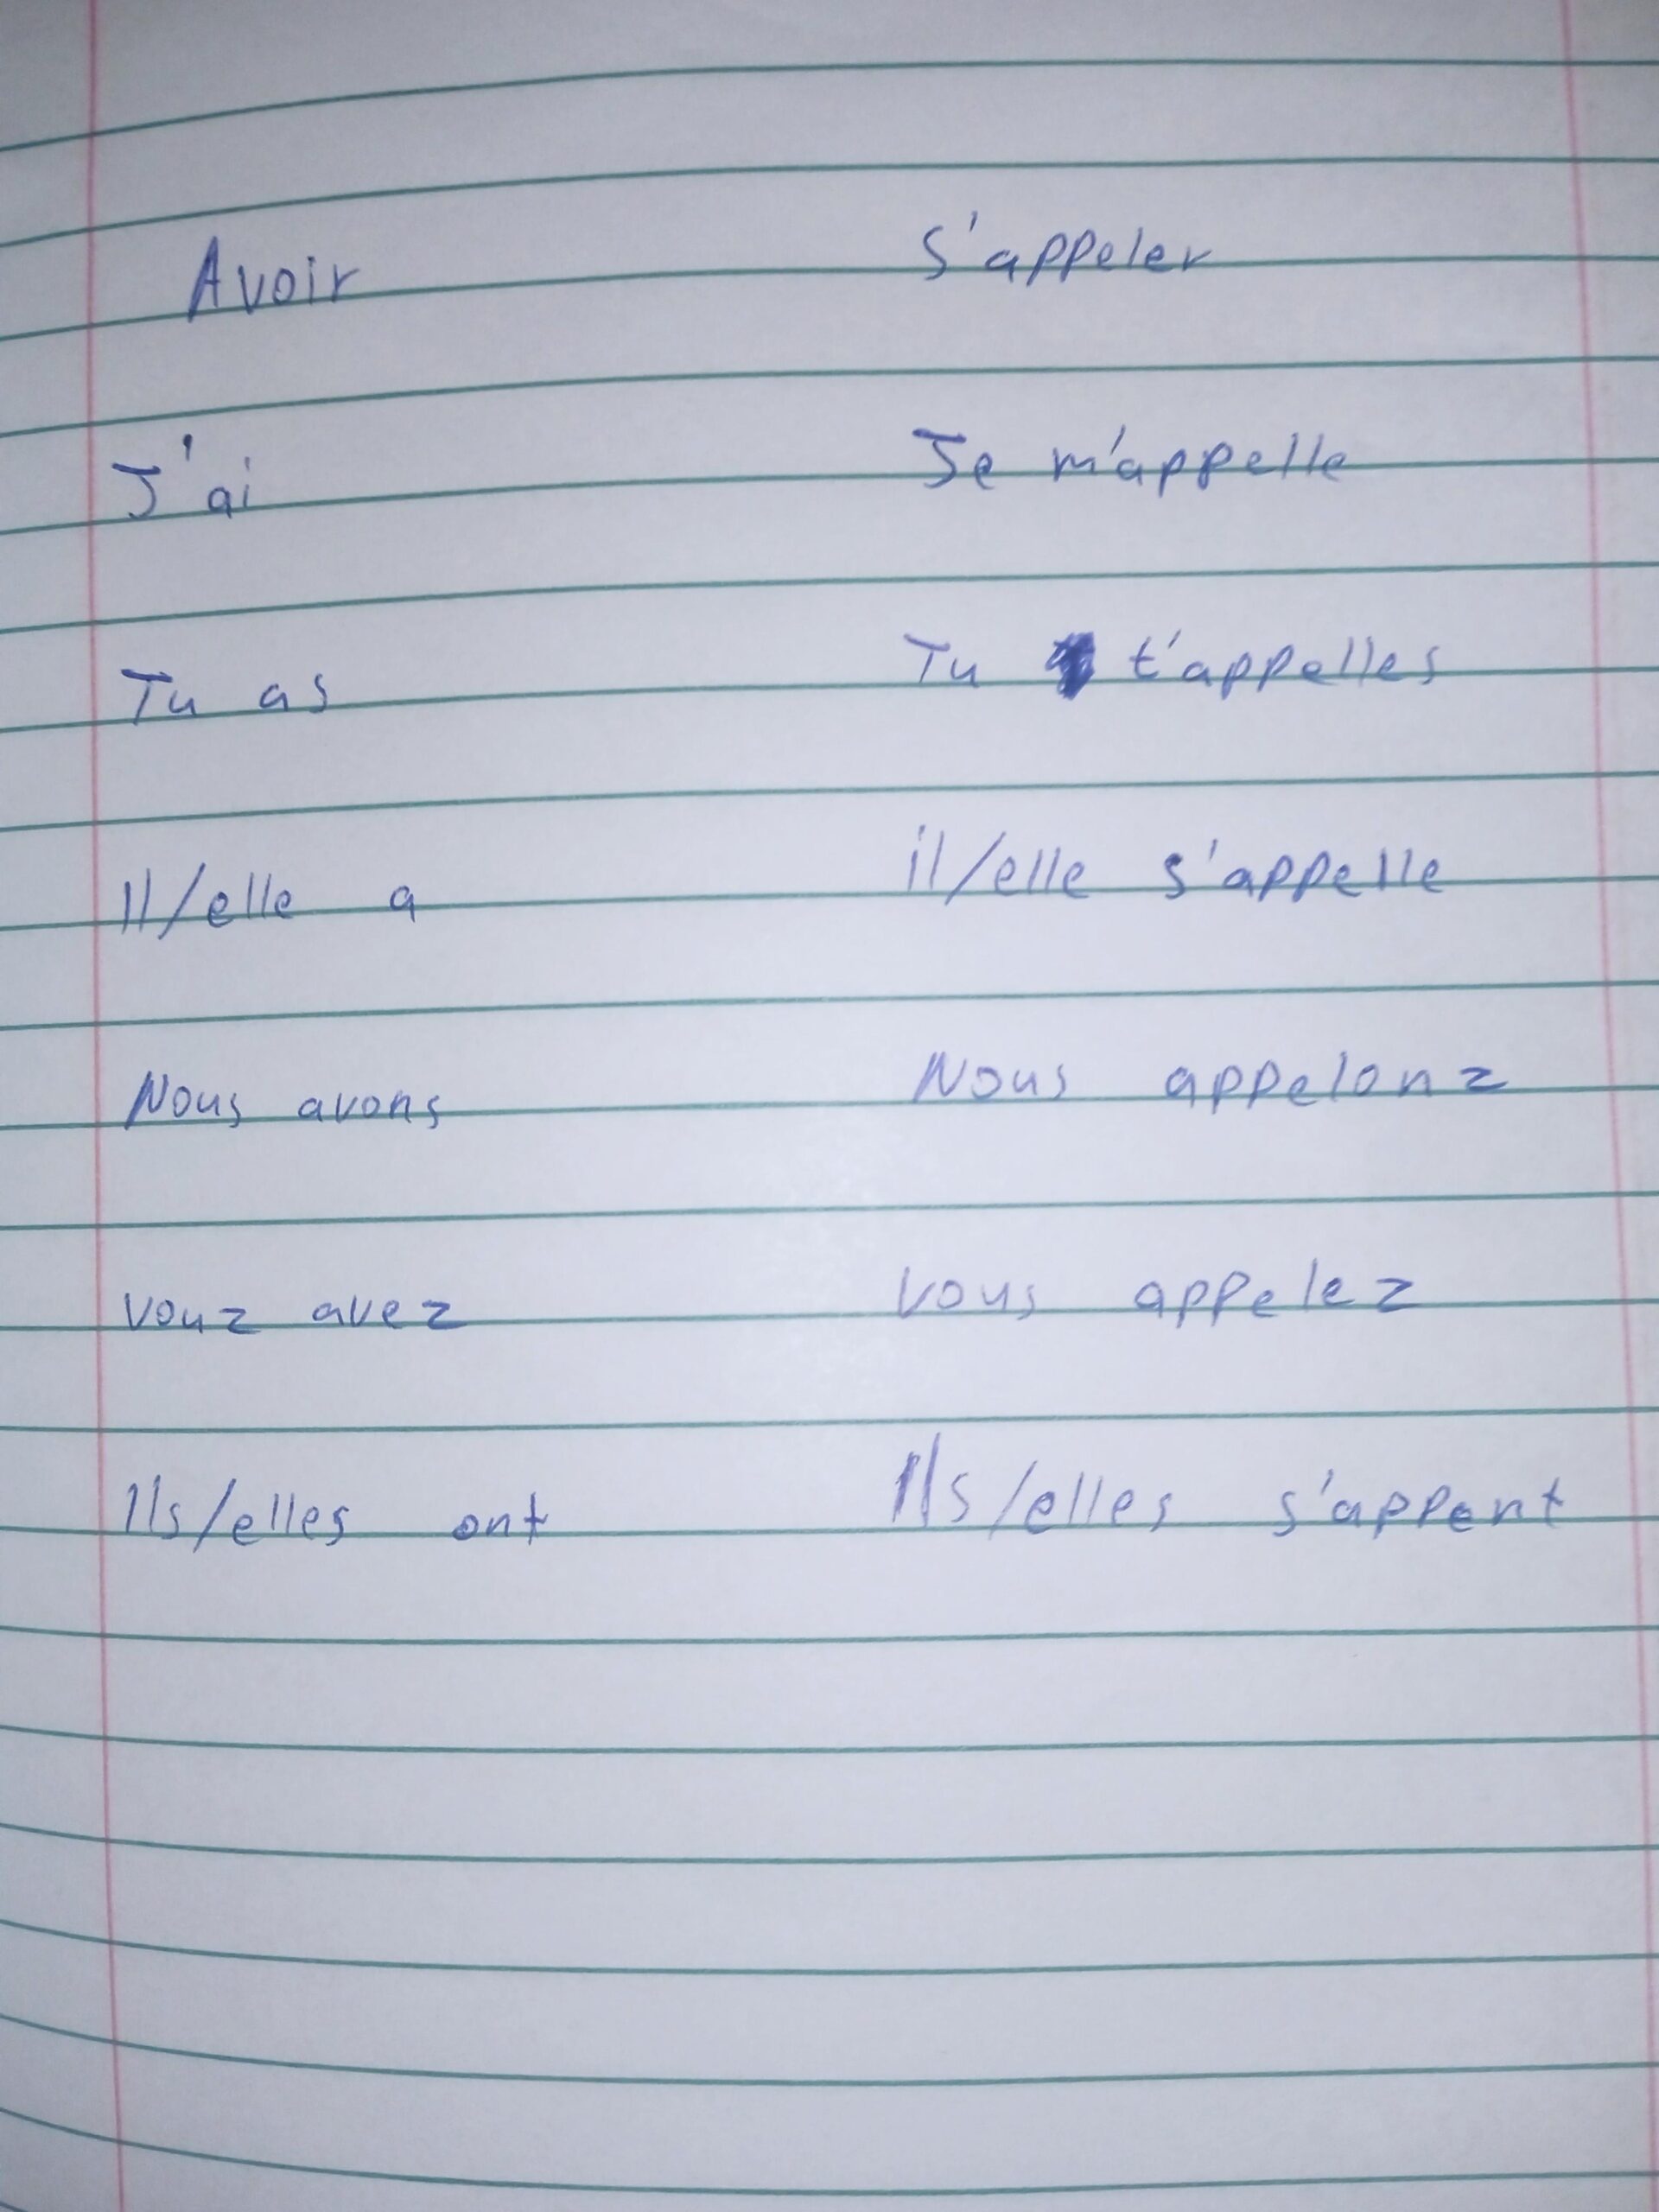 Avoir S'appeler
J'ai Je m'appelle
Tu as Tu t'appelles
Il/elle a il/elle s'appelle
Nous avons Nous appelonz
Vouz avez Vous appelez
Ils/elles ont Ils/elles s'appent